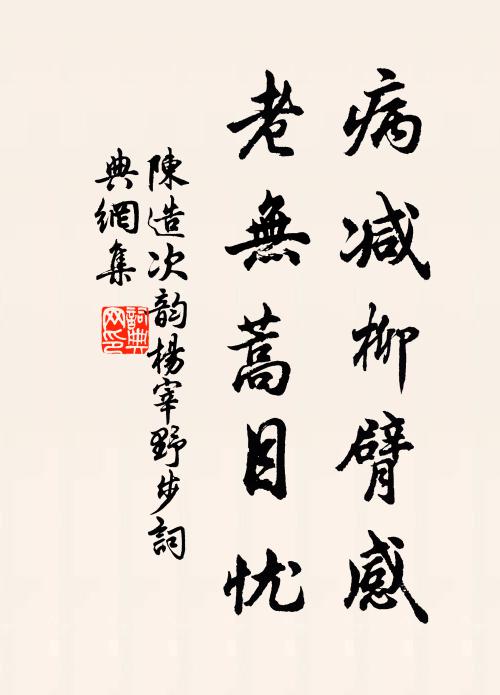 病减柳臂感
老無蒿目忧
陳造次韵楊宰野步詞
典網集
詞典
网印